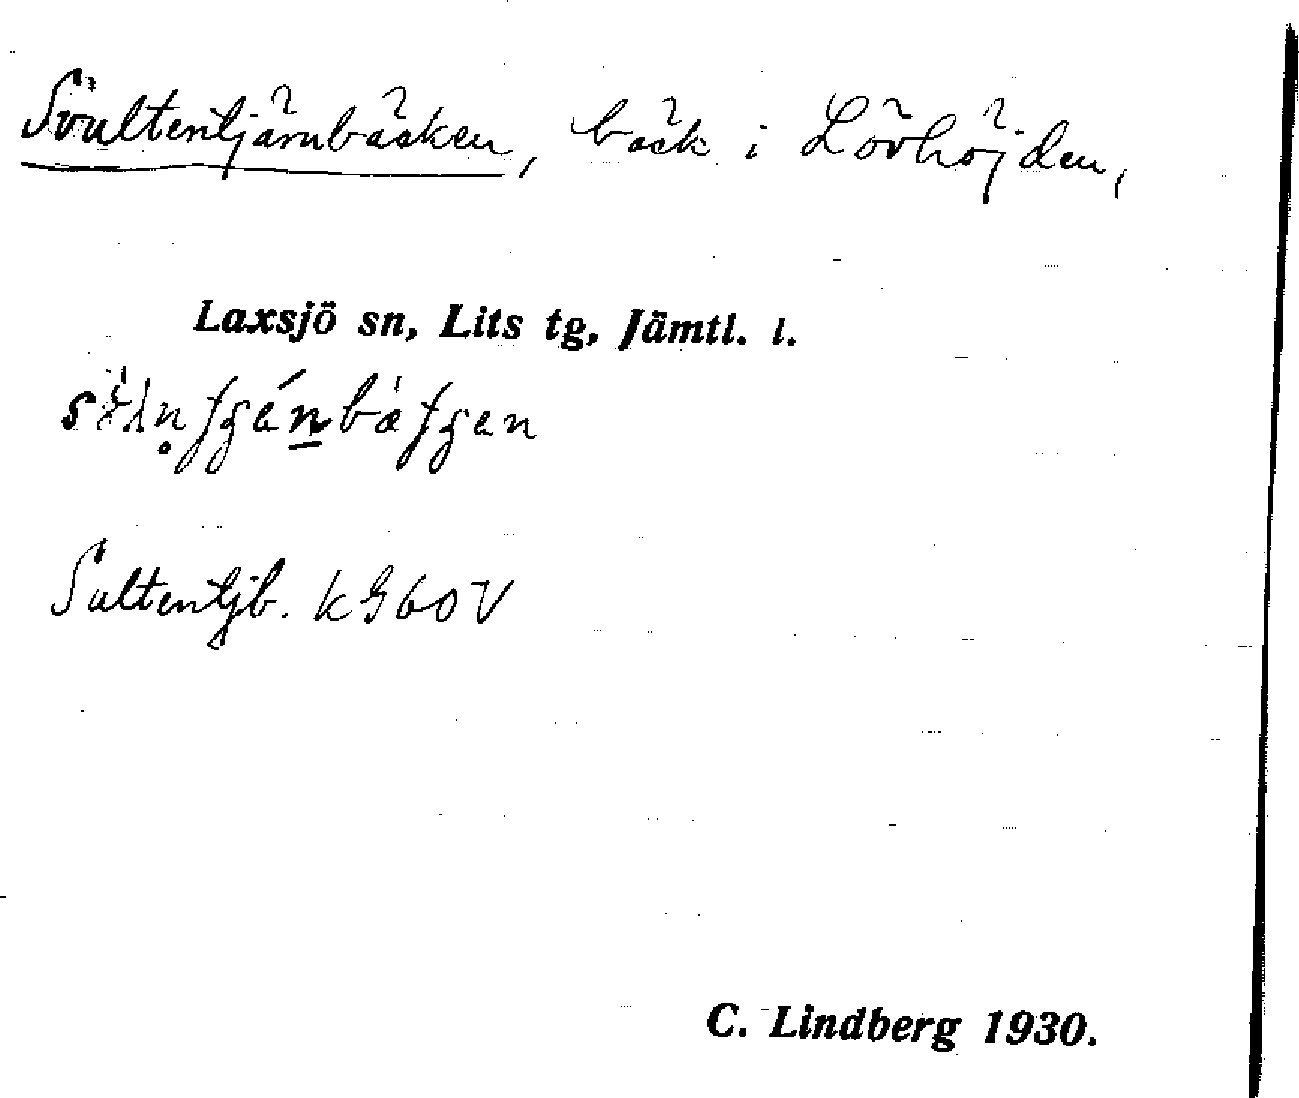 Svultentjärnbäcken, bäck i Lövhöjden,
Laxsjö sn, Lits tg, Jämtl. l.
Sultentjb. k G 60 V
C. Lindberg 1930.